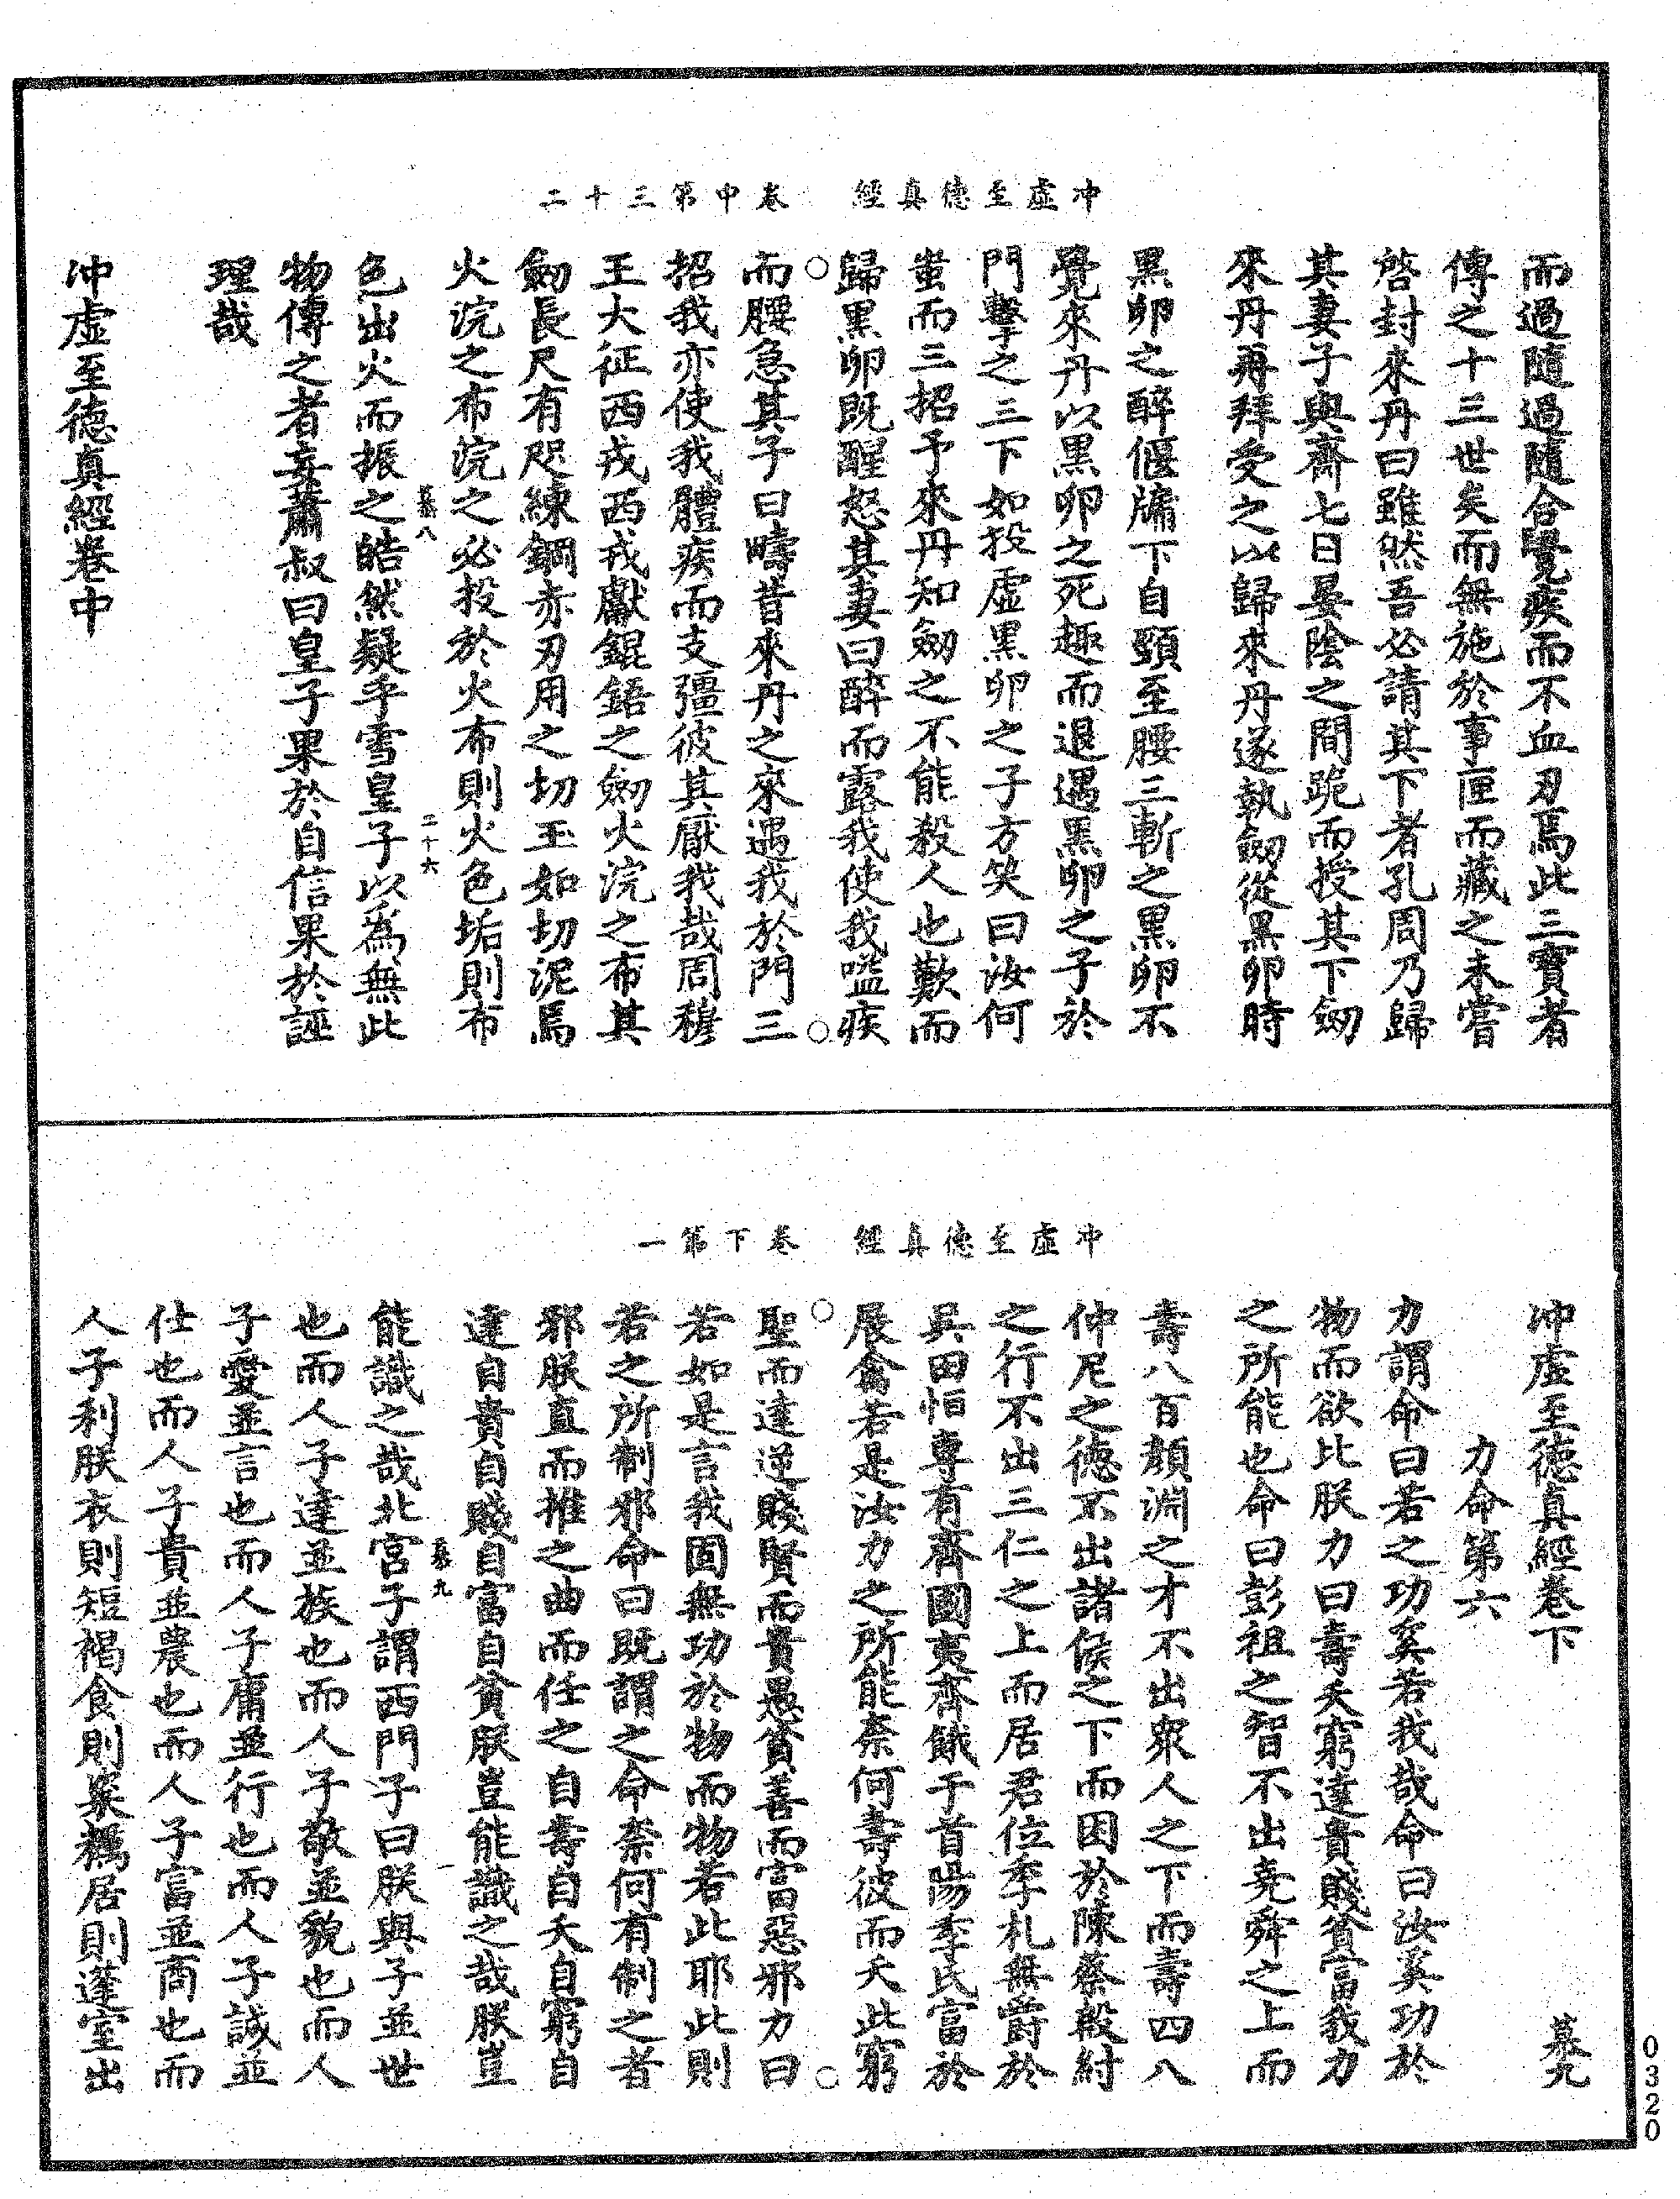 冲虛至德真經　卷中第三十二
而過隨過隨合覺疾而不血刃焉此三寶者
傳之十三世矣而無施於事匣而藏之未嘗
啓封來丹曰雖然吾必請其下者孔周乃歸
其妻子與齋七日晏陰之間跪而授其下劒
來丹再拜受之以歸來丹遂執劒從黑卵時
黑卵之醉偃牖下自頸至腰三斬之黑卵不
覺來丹以黑卵之死趣而退遇黑卵之子於
門擊之三下如投虛黑卵之子方笑曰汝何
蚩而三招予來丹知劒之不能殺人也歎而
歸黑卵既醒怒其妻曰醉而露我使我嗌疾
而腰急其子曰疇昔來丹之來遇我於門三
招我亦使我體疾而支彊彼其厭我哉周穆
王大征西戎西戎獻錕鋙之劒火浣之布其
劒長尺有咫練鋼赤刃用之切玉如切泥焉
火浣之布浣之必投於火布則火色垢則布
慕八　二十六
色出火而振之皓然疑乎雪皇子以為無此
物傳之者妄蕭叔曰皇子果於自信果於誣
理哉
冲虛至德真經卷中
冲虛至德真經　卷下第一
冲虛至德真經卷下　慕九
力命第六
力謂命曰若之功奚若我哉命曰汝奚功於
物而欲比朕力曰壽夭窮達貴賤貧富我力
之所能也命曰彭祖之智不出堯舜之上而
壽八百顏淵之才不出眾人之下而壽四八
仲尼之德不出諸侯之下而困於陳蔡殷紂
之行不出三仁之上而居君位季札無爵於
吳田恒專有齊國夷齊餓于首陽季氏富於
展禽若是汝力之所能柰何壽彼而夭此窮
聖而達逆賤賢而貴愚貧善而富惡邪力曰
若如是言我固無功於物而物若此耶此則
若之所制邪命曰既謂之命柰何有制之者
邪朕直而推之曲而任之自壽自夭自窮自
達自貴自賤自富自貧朕豈能識之哉朕豈
慕九　一
能識之哉北宮子謂西門子曰朕與子並世
也而人子達並族也而人子敬並貌也而人
子愛並言也而人子庸並行也而人子誠並
仕也而人子貴並農也而人子富並商也而
人子利朕衣則短褐食則粢糲居則蓬室出
0320